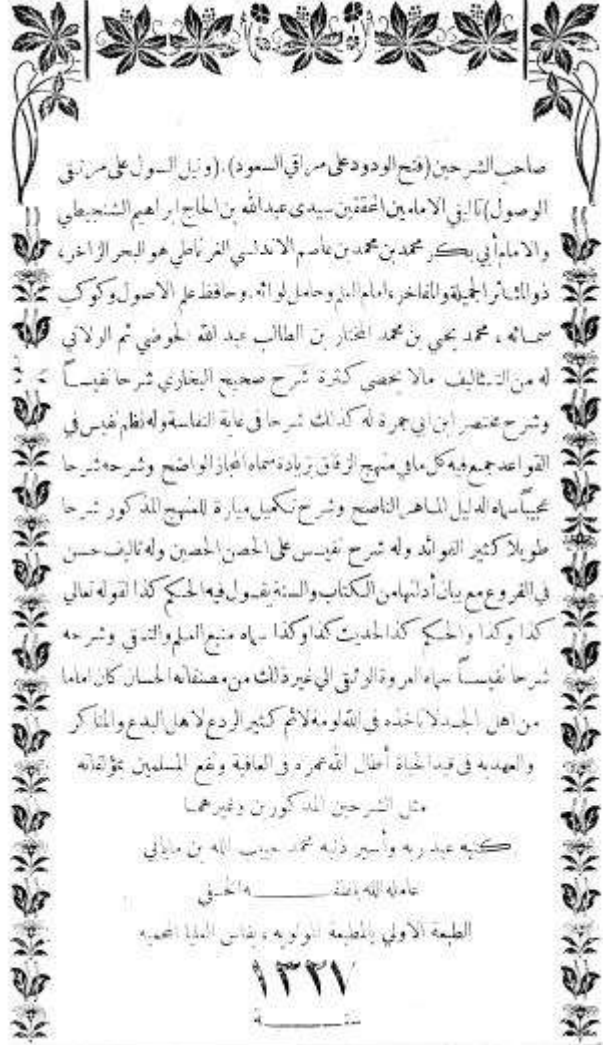 صاحب الشرحين (فتح الودود على مراقي السعود). (ونيل السول على مرتقى
الوصول) تاليفي الامامين المحققين سيدى عبدالله بن الحاج ابراهيم الشنجيطي
والامام أبي بكر محمد بن محمد بن عاصم الاندلسي الغرناطي هو البحر الزاخر،
ذو المئاثر الجميلة والمفاخر، امام العلم وحامل لوائه، وحافظ علم الاصول وكوكب
سمائه، محمد يحي بن محمد المختار بن الطالب عبد الله الحوضي ثم الولاتي
له من التئاليف مالا يحصى كثرة شرح صحيح البخاري شرحا نفيساً
وشرح مختصر ابن ابي جمرة له كذلك شرحا في غاية النفاسة وله نظم نفيس في
القواعد جمع فيه كل مافي منهج الزقاق بزيادة سماه المجاز الواضح وشرحه شرحا
عجيباً سماه الدليل الماهر الناصح وشرح تكميل ميارة للمنهج المذكور شرحا
طويلا كثير الفوائد وله شرح نفيس على الحصن الحصين وله تاليف حسن
في الفروع مع بيان أدلتها من الكتاب والسنة يقول فيه الحكم كذا لقوله تعالي
كذا وكذا والحكم كذا لحديث كذا وكذا سماه منبع العلم والتقى وشرحه
شرحا نفيساً سماه العروة الوثقى الي غير ذلك من مصنفاته الحسان كان اماما
من اهل الجد لا تاخذه في الله لومة لائم كثير الردع لاهل البدع والمناكر
والعهد به في قيد الحياة أطال الله عمره في العافية ونفع المسلمين بمؤلفاته
مثل الشرحين المذكورين وغيرهما
كتبه عبد ربه وأسير ذنبه محمد حبيب الله بن مايابي
عامله الله بلطفه الخفي
الطبعة الاولي بالمطبعة المولويه بفاس العليا المحميه
١٣٢٧
سنة